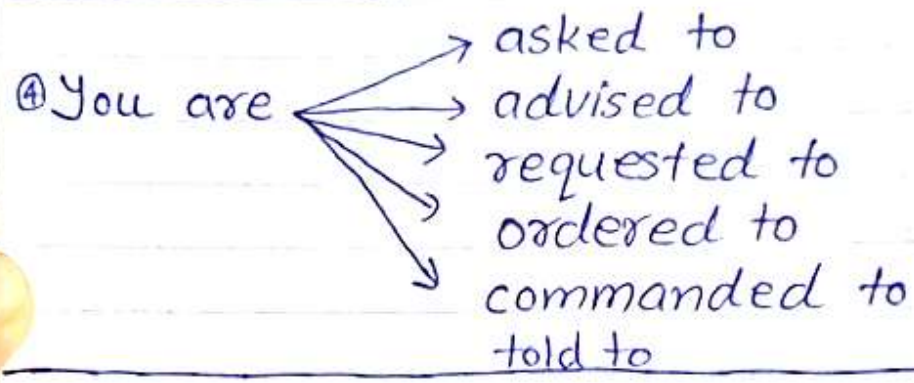 ④ You are
asked to
advised to
requested to
ordered to
commanded to
told to